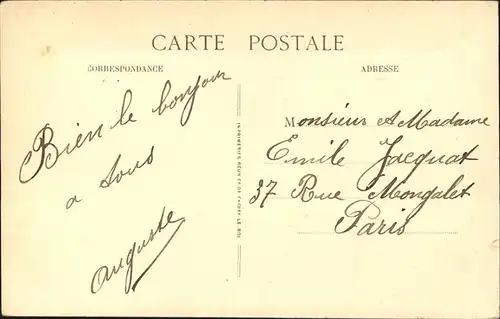 CARTE POSTALE
CORRESPONDANCE
ADRESSE
Bien le bonjour
a tous
Auguste
Monsieur et Madame
Emile Jacquat
37 Rue Mongalet
Paris